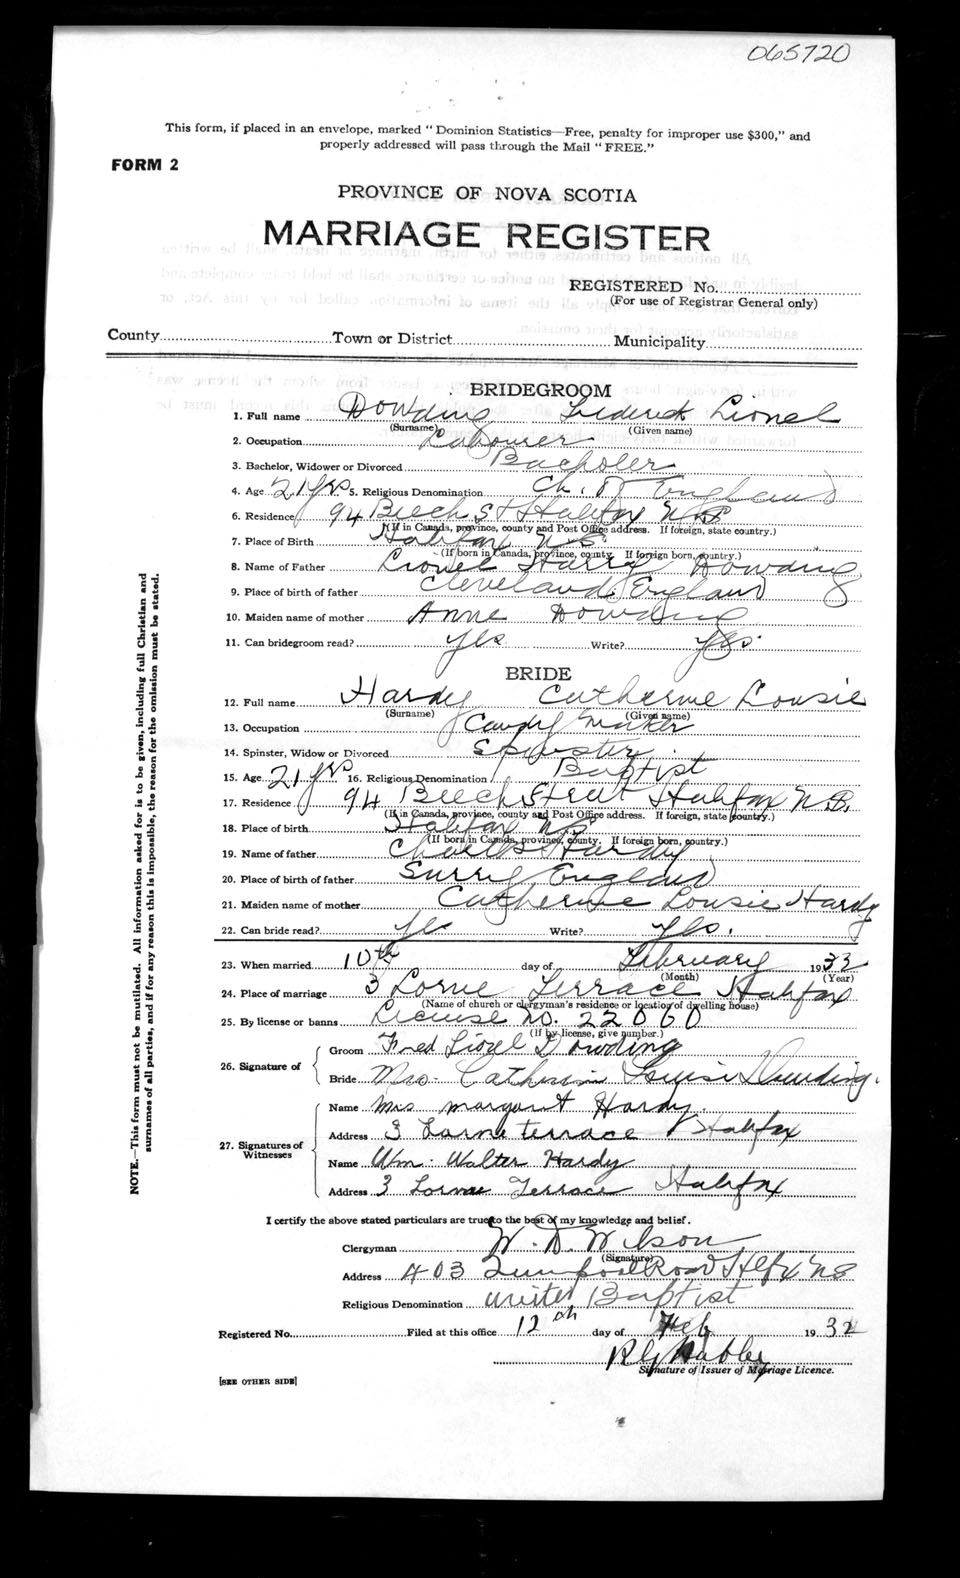 065720
This form, if placed in an envelope, marked "Dominion Statistics—Free, penalty for improper use $300," and
properly addressed will pass through the Mail "FREE."
FORM 2
PROVINCE OF NOVA SCOTIA
MARRIAGE REGISTER
REGISTERED No.
(For use of Registrar General only)
County Town or District Municipality
BRIDEGROOM
1. Full name Dowding Frederick Lionel
(Surname) (Given name)
2. Occupation Labourer
3. Bachelor, Widower or Divorced Bacholer
4. Age 21 yrs 5. Religious Denomination Ch. of England
6. Residence 94 Beech St Halifax N.S
(If in Canada, province, county and Post Office address. If foreign, state country.)
7. Place of Birth Halifax N.S
(If born in Canada, province, county. If foreign born, country.)
8. Name of Father Lionel Harry Dowding
9. Place of birth of father Cleveland England
10. Maiden name of mother Anne Dowding
11. Can bridegroom read? Yes Write? Yes.
BRIDE
12. Full name Hardy Catherine Lousie
(Surname) (Given name)
13. Occupation Candy Maker
14. Spinster, Widow or Divorced Spinster
15. Age 21 yrs 16. Religious Denomination Baptist
17. Residence 94 Beech Street Halifax N.S.
(If in Canada, province, county and Post Office address. If foreign, state country.)
18. Place of birth Halifax N.S
(If born in Canada, province, county. If foreign born, country.)
19. Name of father Charles Hardy
20. Place of birth of father Surry England
21. Maiden name of mother Catherine Lousie Hardy
22. Can bride read? Yes Write? Yes.
23. When married 10th day of February 1932
(Month) (Year)
24. Place of marriage 3 Lorne Terrace Halifax
(Name of church or clergyman's residence or location of dwelling house)
25. By license or banns License No. 22060
(If by license, give number.)
26. Signature of Groom Fred Lionel Dowding
Bride Mrs. Catherine Louise Dowding.
27. Signatures of Witnesses
Name Mrs Margaret Hardy.
Address 3 Lorne terrace Halifax
Name Wm. Walter Hardy
Address 3 Lorne Terrace Halifax
I certify the above stated particulars are true to the best of my knowledge and belief.
Clergyman W. D. Wilson
(Signature)
Address 403 Road Hlfx NS
Religious Denomination United Baptist
Registered No. Filed at this office 12th day of Feb 1932
Signature of Issuer of Marriage Licence.
[SEE OTHER SIDE]
NOTE.—This form must not be mutilated. All information asked for is to be given, including full Christian and
surnames of all parties, and if for any reason this is impossible, the reason for the omission must be stated.